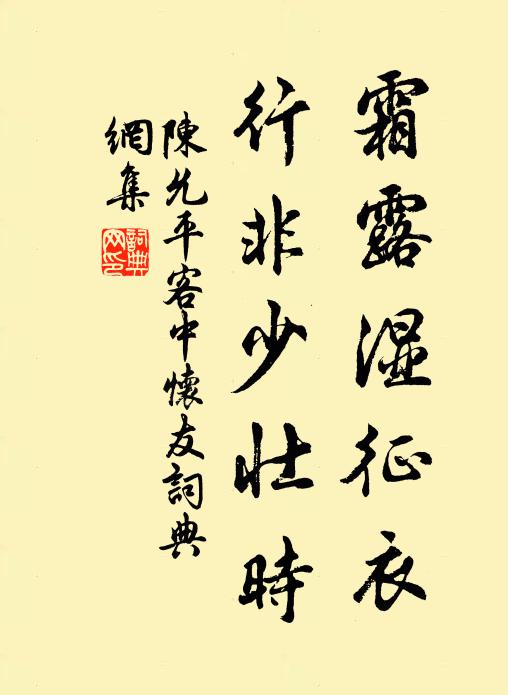 霜露湿征衣
行非少壮時
陳允平客中懷友詞典
網集
詞典
网印